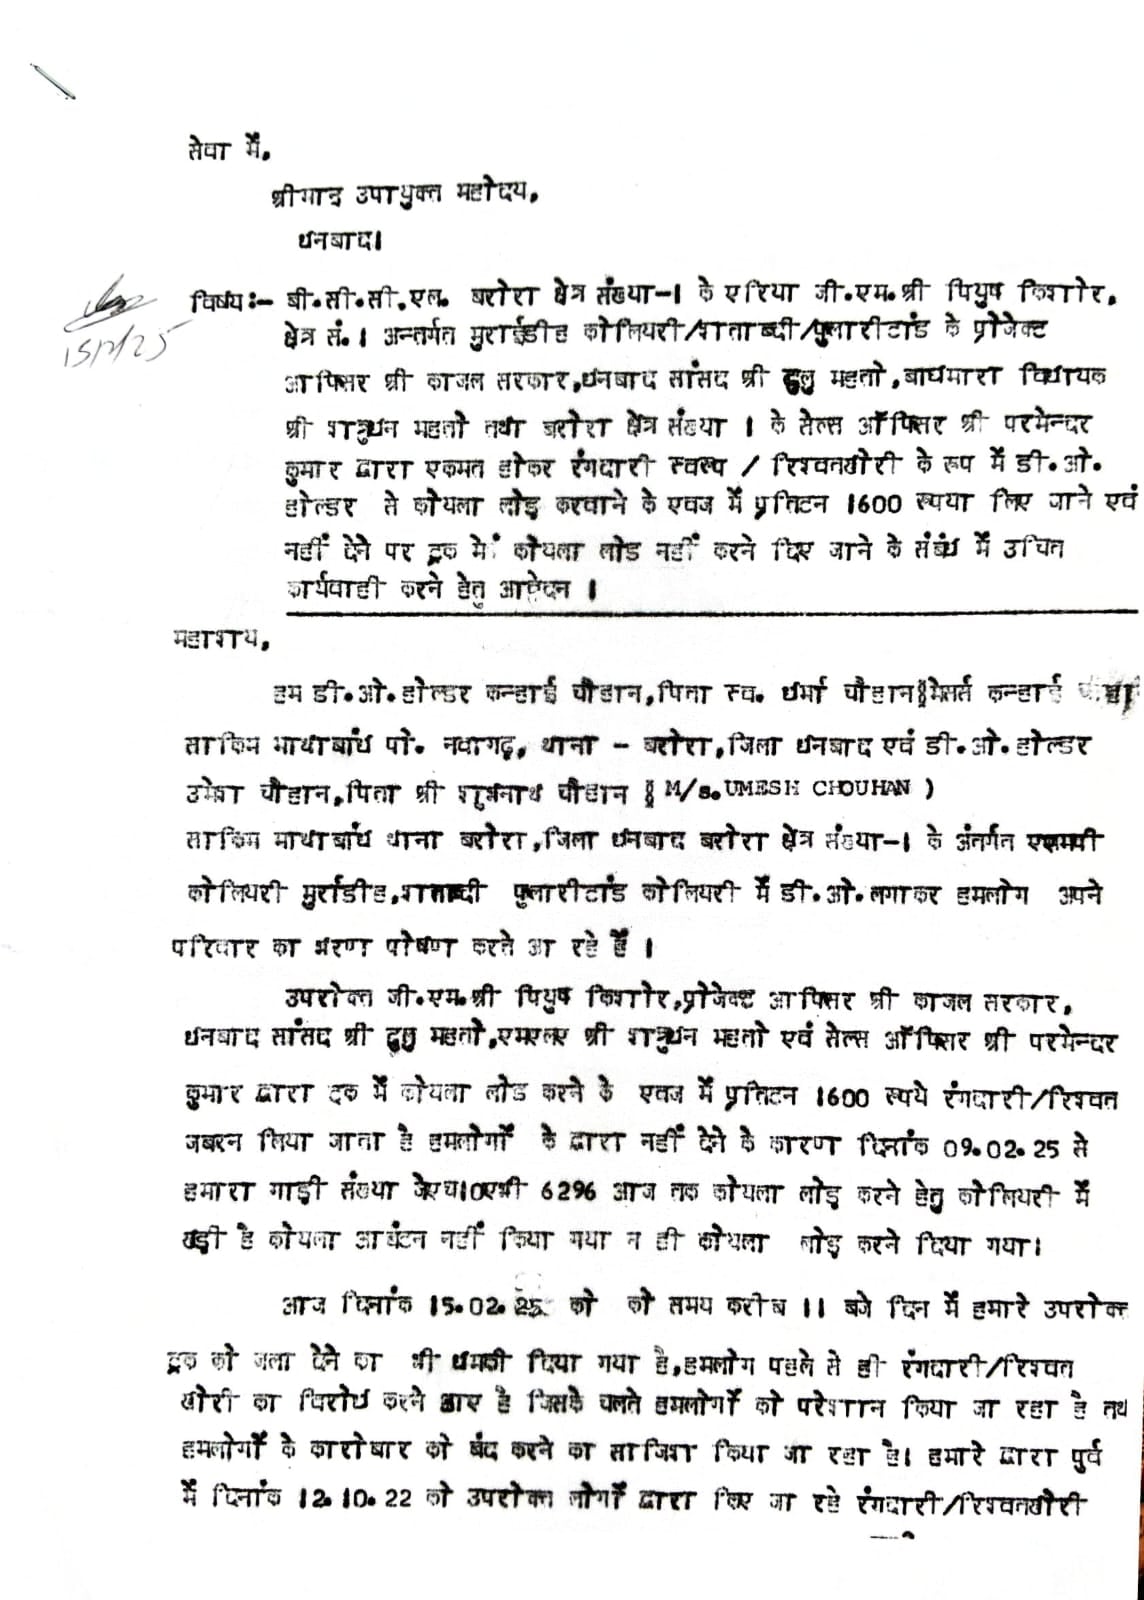 सेवा में,
श्रीमान उपायुक्त महोदय,
धनबाद।
विषय:- बी.सी.सी.एल. बरोरा क्षेत्र संख्या-1 के एरिया जी.एम.श्री पियुष किशोर,
क्षेत्र सं.1 अन्तर्गत मुराईडीह कोलियरी/शताब्दी/फुलारीटांड के प्रोजेक्ट
आफिसर श्री काजल सरकार,धनबाद सांसद श्री ढुलु महतो,बाघमारा विधायक
श्री शत्रुधन महतो तथा बरोरा क्षेत्र संख्या 1 के सेल्स ऑफिसर श्री परमेन्दर
कुमार द्वारा एकमत होकर रंगदारी स्वरूप / रिश्वतखोरी के रूप में डी.ओ.
होल्डर से कोयला लोड़ करवाने के एवज में प्रतिटन 1600 रूपया लिए जाने एवं
नहीं देने पर ट्रक में कोयला लोड नहीं करने दिए जाने के संबंध में उचित
कार्यवाही करने हेतु आवेदन ।
15/2/25
महाशय,
हम डी.ओ.होल्डर कन्हाई चौहान,पिता स्व. धर्मा चौहान(मेसर्स कन्हाई
साकिम माथाबांध पो. नवागढ़, थाना - बरोरा,जिला धनबाद एवं डी.ओ.होल्डर
उमेश चौहान,पिता श्री शुभनाथ चौहान ( M/s.UMESH CHOUHAN )
साकिम माथाबांध थाना बरोरा,जिला धनबाद बरोरा क्षेत्र संख्या-1 के अंतर्गत
कोलियरी मुराडीह,शताब्दी फुलारीटांड कोलियरी में डी.ओ.लगाकर हमलोग अपने
परिवार का भरण पोषण करते आ रहे हैं ।
उपरोक्त जी.एम.श्री पियुष किशोर,प्रोजेक्ट आफिसर श्री काजल सरकार,
धनबाद सांसद श्री ढुलु महतो,एमएलए श्री शत्रुधन महतो एवं सेल्स ऑफिसर श्री परमेन्दर
कुमार द्वारा ट्रक में कोयला लोड करने के एवज में प्रतिटन 1600 रूपये रंगदारी/रिश्वत
जबरन लिया जाता है हमलोगों के द्वारा नहीं देने के कारण दिनांक 09.02.25 से
हमारा गाड़ी संख्या जेएच10एबी 6296 आज तक कोयला लोड़ करने हेतु कोलियरी में
खड़ी है कोयला आबंटन नहीं किया गया न ही कोयला लोड़ करने दिया गया।
आज दिनांक 15.02.25 को को समय करीब 11 बजे दिन में हमारे उपरोक्त
ट्रक को जला देने का भी धमकी दिया गया है,हमलोग पहले से ही रंगदारी/रिश्वत
खोरी का विरोध करने आए है जिसके चलते हमलोगों को परेशान किया जा रहा है तथ
हमलोगों के कारोबार को बंद करने का साजिश किया जा रहा है। हमारे द्वारा पुर्व
में दिनांक 12.10.22 को उपरोक्त लोगों द्वारा लिए जा रहे रंगदारी/रिश्वतखोरी